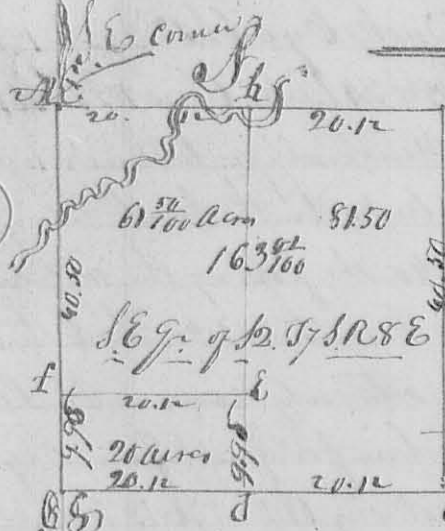 S E corner
A h
20.12 20.12
61 50/100 Acres 81.50
163 00/100
40.50 40.50
S E Qr of S2. T7 S R 8 E
f 20.12 E
20 Acres
20.12 20.12
B d